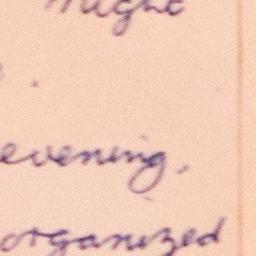 might
.
evening,
organized